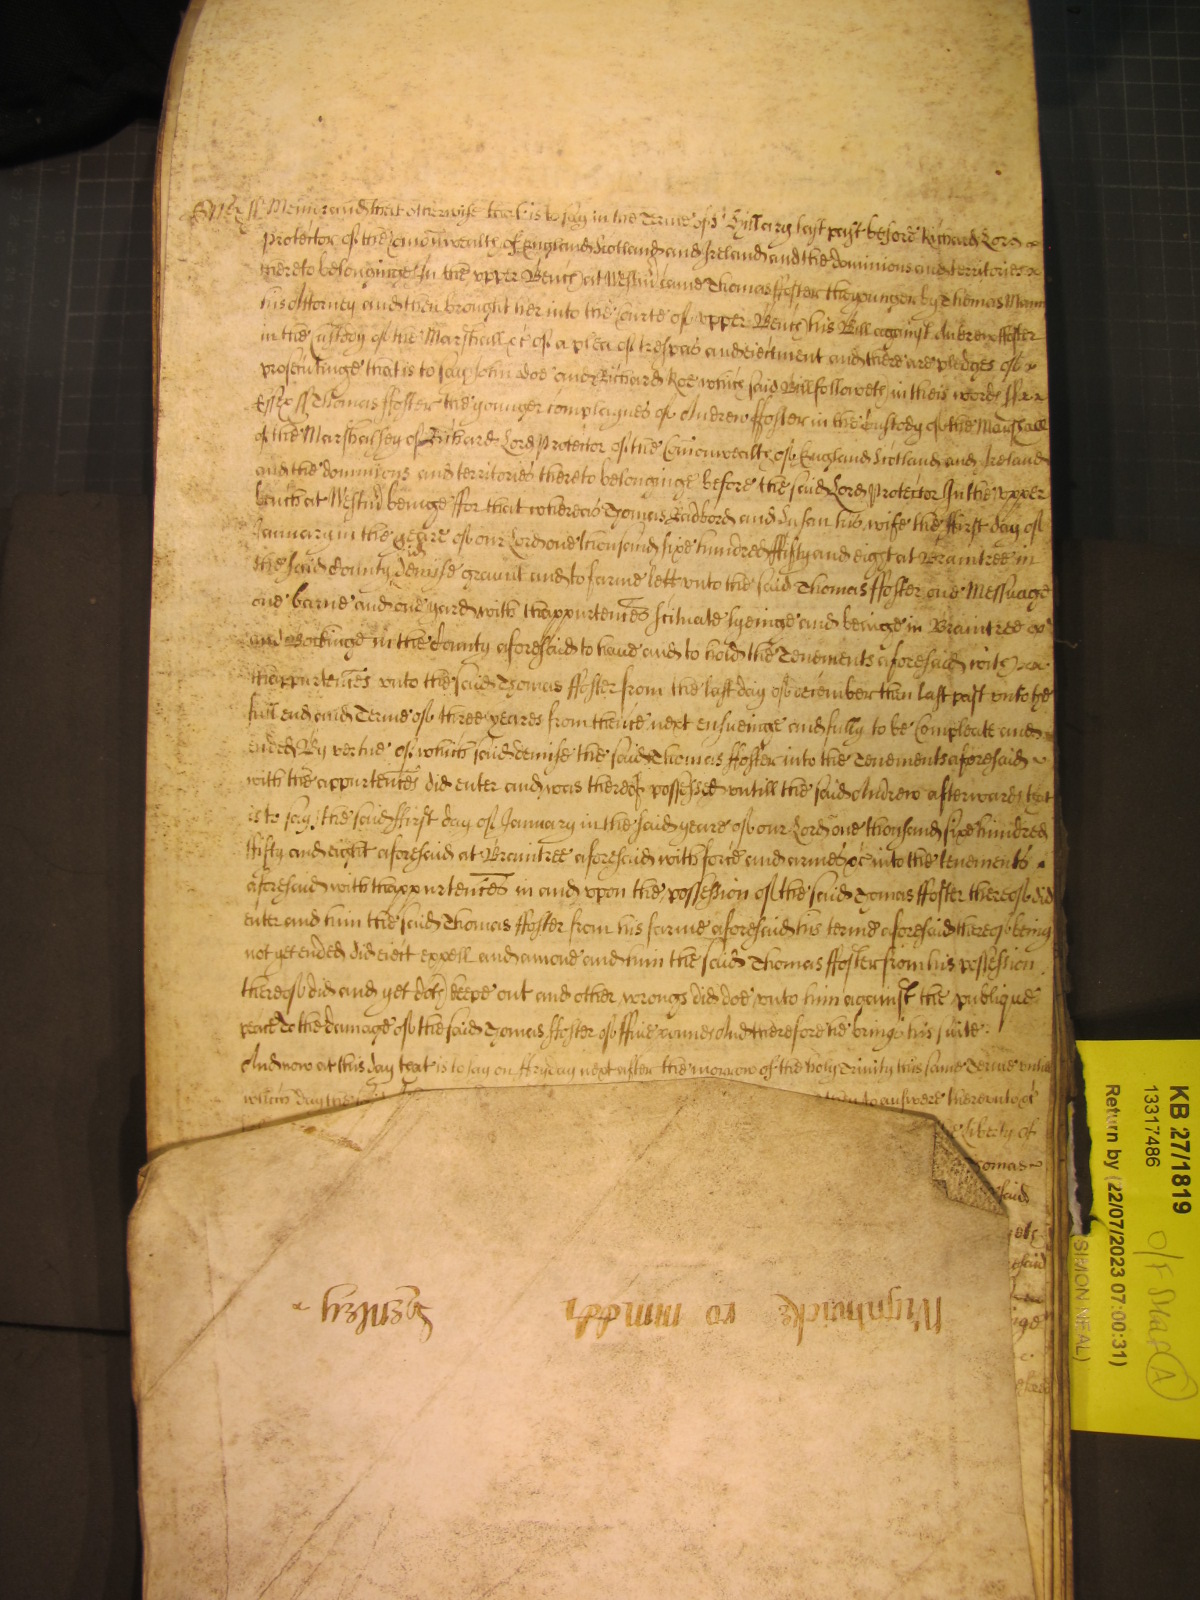 Essex ss Memorand that otherwise that is to say in the Terme of St Hillary last past before Richard Lord
Protector of the Comonwealth of England Scotland and Ireland and the dominions and territories
thereto belonginge In the upper Bench at Westm came Thomas ffoster the younger by Thomas
his Attorney and then brought here into the Courte of upper Bench his Bill against Andrew ffoster
in the Custody of the Marshall &c of a plea of trespas and eiectment and there are pledges of
prosecutinge that is to say John Doe and Richard Roe which said Bill followeth in theis words ss
Essex ss Thomas ffoster the younger complaynes of Andrew ffoster in the Custody of the Marshall
of the Marshalsey of Richard Lord Protector of the Comonwealth of England Scotland and Ireland
and the dominions and territories thereto belonginge before the said Lord Protector In the upper
bench at Westm beinge ffor that whereas Thomas Radford and Susan his wife the ffirst day of
January in the yeare of our Lord one thousand sixe hundred ffifty and eight at Braintree in
the said County did demyse graunt and to farme lett unto the said Thomas ffoster one Messuage
one barne and one yard with thappurtences scituate lyeinge and beinge in Braintree
and Bockinge in the County aforesaid to have and to hold the Tenements aforesaid with
thappurtences unto the said Thomas ffoster from the last day of december then last past unto the
full end and Terme of three yeares from thence next ensueinge and fully to be compleate and
ended By vertue of which said demise the said Thomas ffoster into the Tenements aforesaid
with the appurtences did enter and was thereof possessed untill the said Andrew afterwards that
is to say the said ffirst day of January in the said yeare of our Lord one thousand sixe hundred
ffifty and eight aforesaid at Braintree aforesaid with force and armes &c into the tenements
aforesaid with thappurtences in and upon the possession of the said Thomas ffoster thereof did
enter and him the said Thomas ffoster from his farme aforesaid his terme aforesaid thereof being
not yet ended did eiect expell and amove and him the said Thomas ffoster from his possession
thereof did and yet doth keepe out and other wrongs did doe unto him against the publique
peace To the damage of the said Thomas ffoster of ffive pounds And therefore he brings his suite
And now at this day that is to say on ffryday next after the morrow of the holy Trinity this same Terme untill
which day the to answere thereunto &c
liberty of
Thomas
said
Wightwicke ro mindd
KB 27/1819
13317486
Return by (22/07/2023 07:00:31)
SIMON NEAL)
A